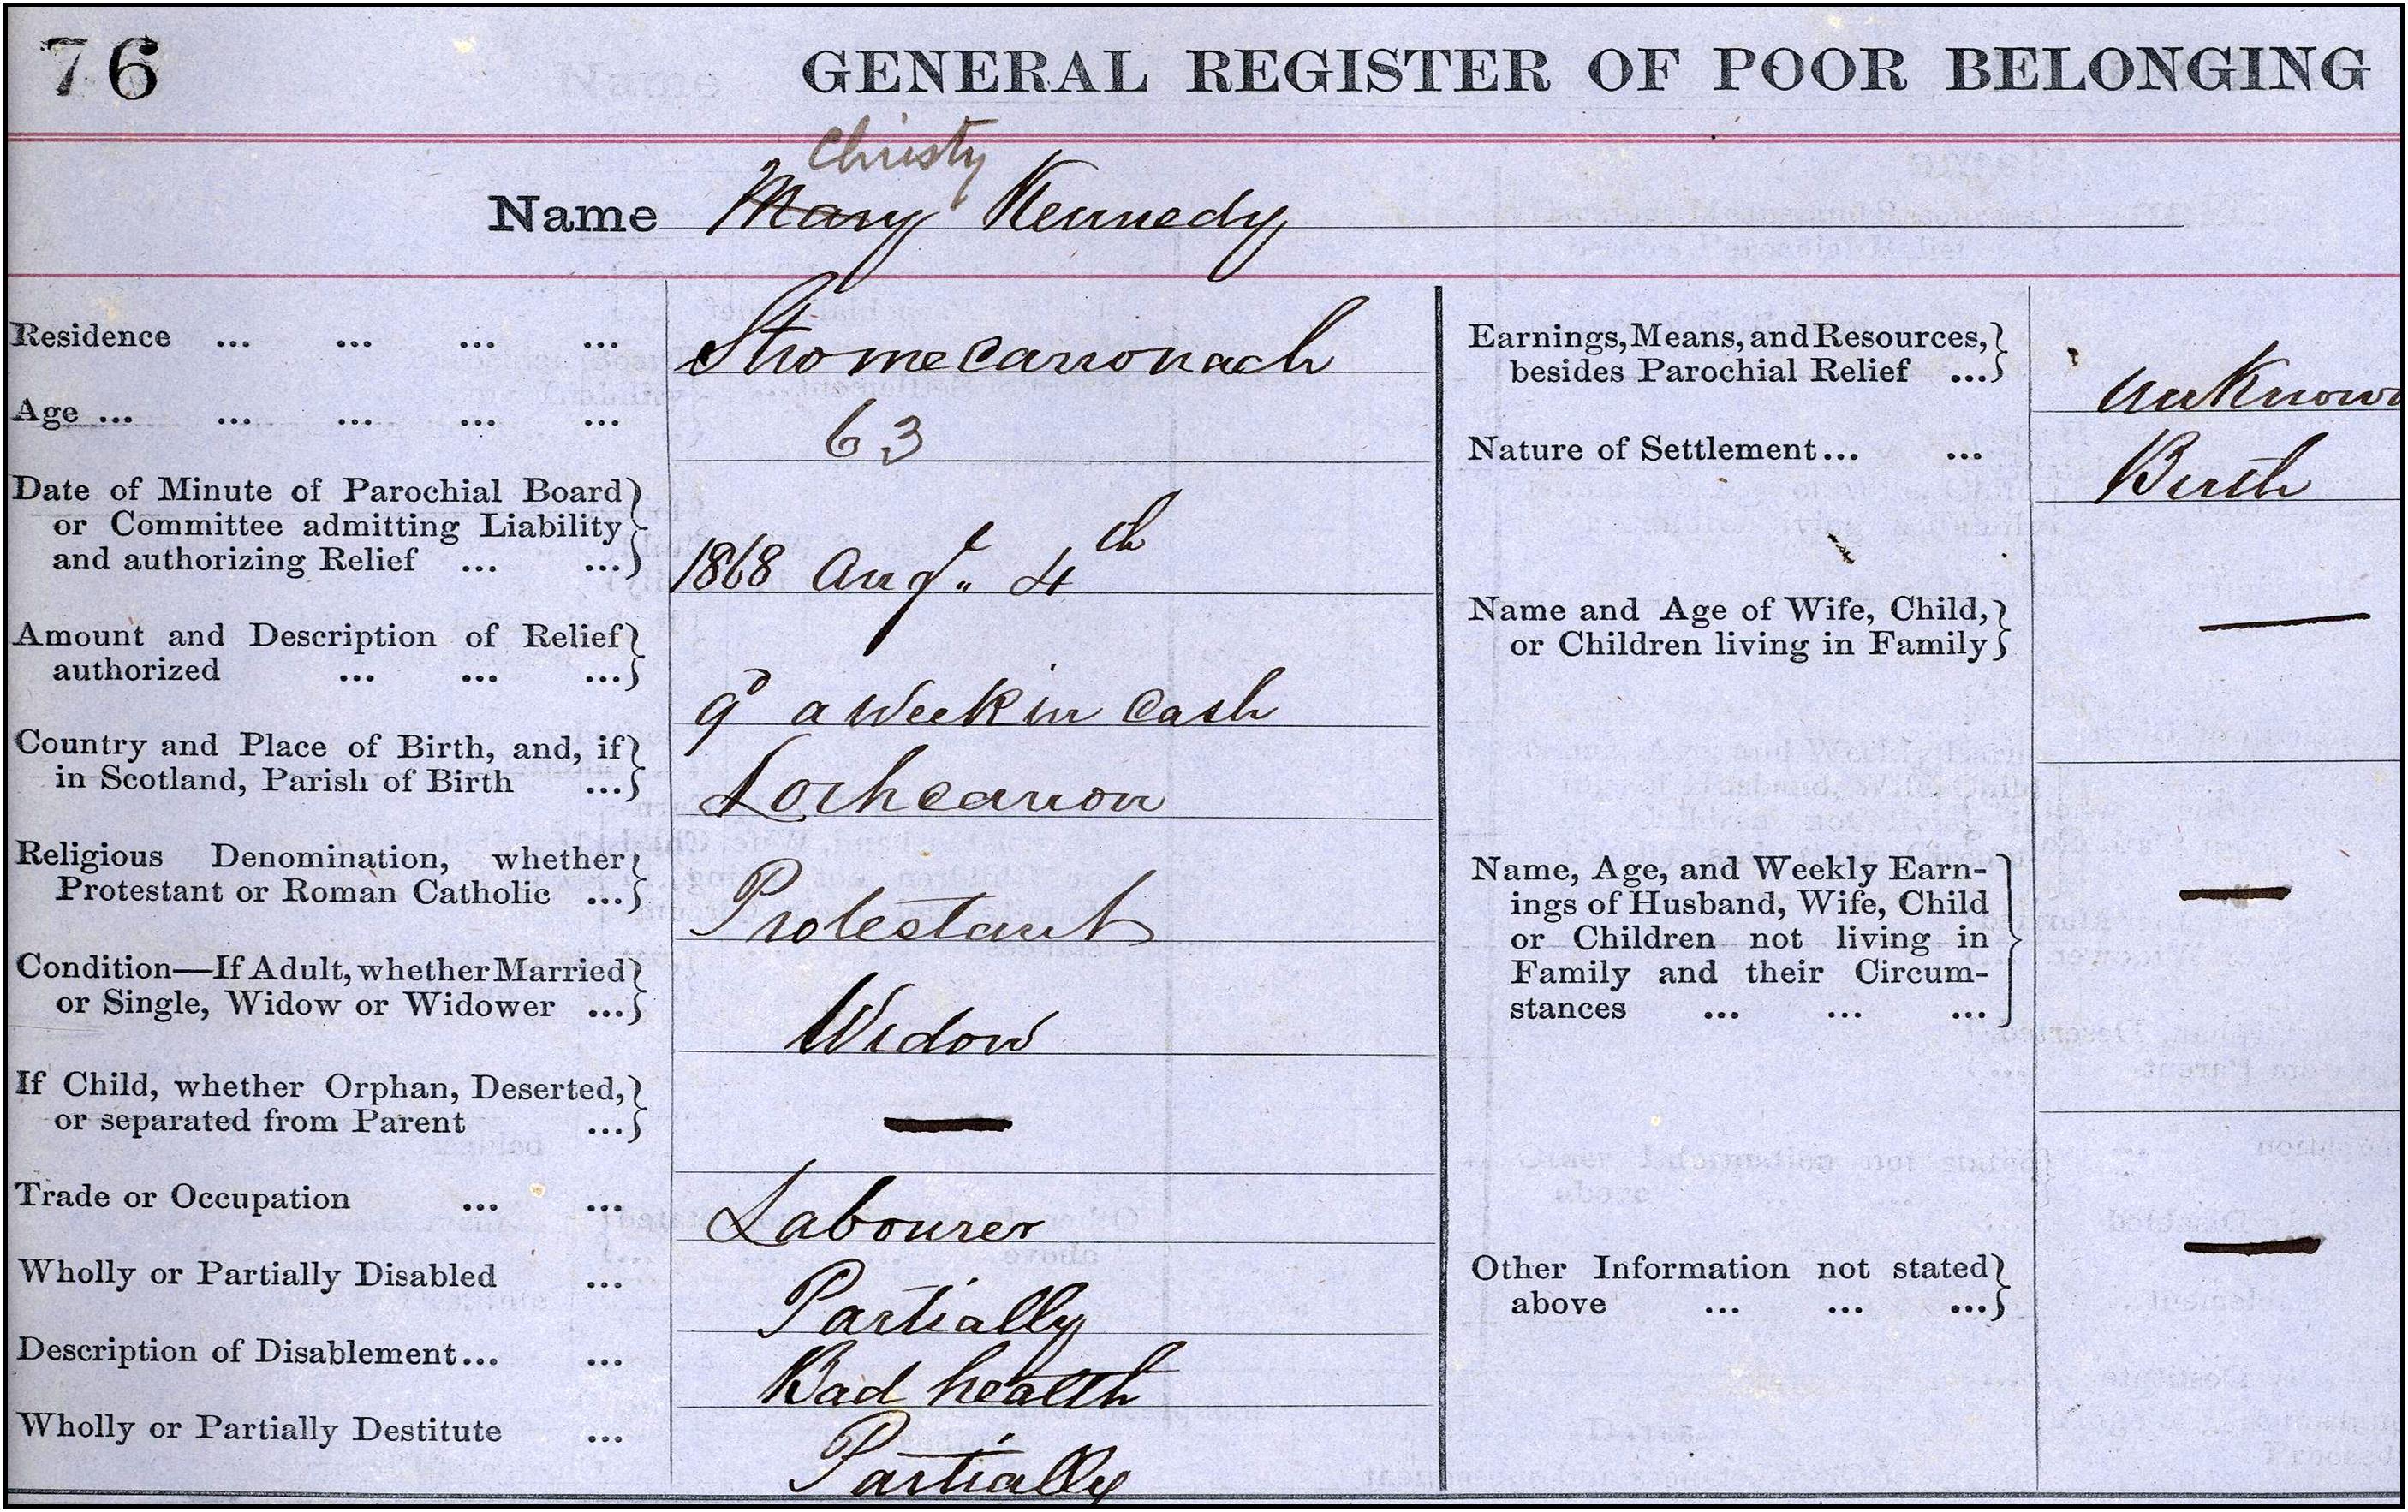 76 GENERAL REGISTER OF POOR BELONGING
Christy
Name Mary Kennedy
Residence ... ... ... ... Stromecarronach
Age ... ... ... ... ... 63
Date of Minute of Parochial Board
or Committee admitting Liability
and authorizing Relief ... ... 1868 Augt. 4th
Amount and Description of Relief
authorized ... ... ... 9D a week in Cash
Country and Place of Birth, and, if
in Scotland, Parish of Birth ... Lochcarron
Religious Denomination, whether
Protestant or Roman Catholic ... Protestant
Condition—If Adult, whether Married
or Single, Widow or Widower ... Widow
If Child, whether Orphan, Deserted,
or separated from Parent ... —
Trade or Occupation ... ... Labourer
Wholly or Partially Disabled ... Partially
Description of Disablement... ... Bad health
Wholly or Partially Destitute ... Partially
Earnings, Means, and Resources,
besides Parochial Relief ... Unknown
Nature of Settlement... ... Birth
Name and Age of Wife, Child,
or Children living in Family —
Name, Age, and Weekly Earn-
ings of Husband, Wife, Child
or Children not living in
Family and their Circum-
stances ... ... ... —
Other Information not stated
above ... ... ... —